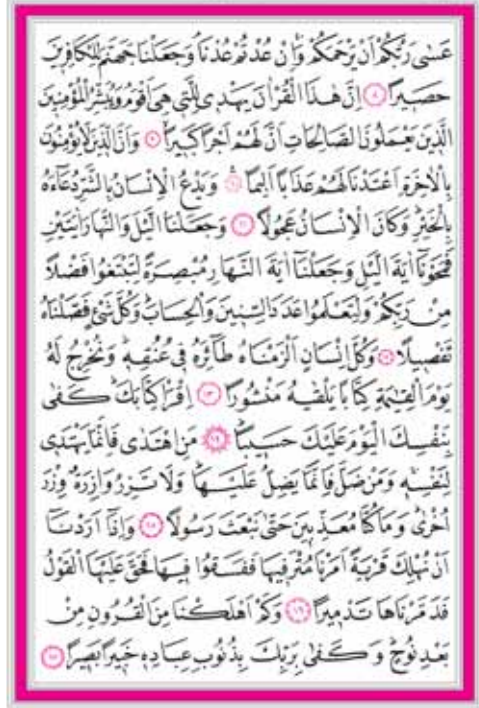 عَسٰى رَبُّكُمْ اَنْ يَرْحَمَكُمْ وَاِنْ عُدْتُمْ عُدْنَاۢ وَجَعَلْنَا جَهَنَّمَ لِلْكَافِرٖينَ
حَصٖيرًا ﴿٨﴾ اِنَّ هٰذَا الْقُرْاٰنَ يَهْدٖى لِلَّتٖى هِىَ اَقْوَمُ وَيُبَشِّرُ الْمُؤْمِنٖينَ
الَّذٖينَ يَعْمَلُونَ الصَّالِحَاتِ اَنَّ لَهُمْ اَجْرًا كَبٖيرًا ﴿٩﴾ وَاَنَّ الَّذٖينَ لَا يُؤْمِنُونَ
بِالْاٰخِرَةِ اَعْتَدْنَا لَهُمْ عَذَابًا اَلٖيمًا ﴿١٠﴾ وَيَدْعُ الْاِنْسَانُ بِالشَّرِّ دُعَاۤءَهُ
بِالْخَيْرِ وَكَانَ الْاِنْسَانُ عَجُولًا ﴿١١﴾ وَجَعَلْنَا الَّيْلَ وَالنَّهَارَ اٰيَتَيْنِ
فَمَحَوْنَاۤ اٰيَةَ الَّيْلِ وَجَعَلْنَاۤ اٰيَةَ النَّهَارِ مُبْصِرَةً لِتَبْتَغُوا فَضْلًا
مِنْ رَبِّكُمْ وَلِتَعْلَمُوا عَدَدَ السِّنٖينَ وَالْحِسَابَ وَكُلَّ شَىْءٍ فَصَّلْنَاهُ
تَفْصٖيلًا ﴿١٢﴾ وَكُلَّ اِنْسَانٍ اَلْزَمْنَاهُ طَاۤئِرَهُ فٖى عُنُقِهٖ وَنُخْرِجُ لَهُ
يَوْمَ الْقِيٰمَةِ كِتَابًا يَلْقٰيهُ مَنْشُورًا ﴿١٣﴾ اِقْرَاْ كِتَابَكَ كَفٰى
بِنَفْسِكَ الْيَوْمَ عَلَيْكَ حَسٖيبًا ﴿١٤﴾ مَنِ اهْتَدٰى فَاِنَّمَا يَهْتَدٖى
لِنَفْسِهٖ وَمَنْ ضَلَّ فَاِنَّمَا يَضِلُّ عَلَيْهَا وَلَا تَزِرُ وَازِرَةٌ وِزْرَ
اُخْرٰى وَمَا كُنَّا مُعَذِّبٖينَ حَتّٰى نَبْعَثَ رَسُولًا ﴿١٥﴾ وَاِذَاۤ اَرَدْنَاۤ
اَنْ نُهْلِكَ قَرْيَةً اَمَرْنَا مُتْرَفٖيهَا فَفَسَقُوا فٖيهَا فَحَقَّ عَلَيْهَا الْقَوْلُ
فَدَمَّرْنَاهَا تَدْمٖيرًا ﴿١٦﴾ وَكَمْ اَهْلَكْنَا مِنَ الْقُرُونِ مِنْ
بَعْدِ نُوحٍ وَكَفٰى بِرَبِّكَ بِذُنُوبِ عِبَادِهٖ خَبٖيرًا بَصٖيرًا ﴿١٧﴾